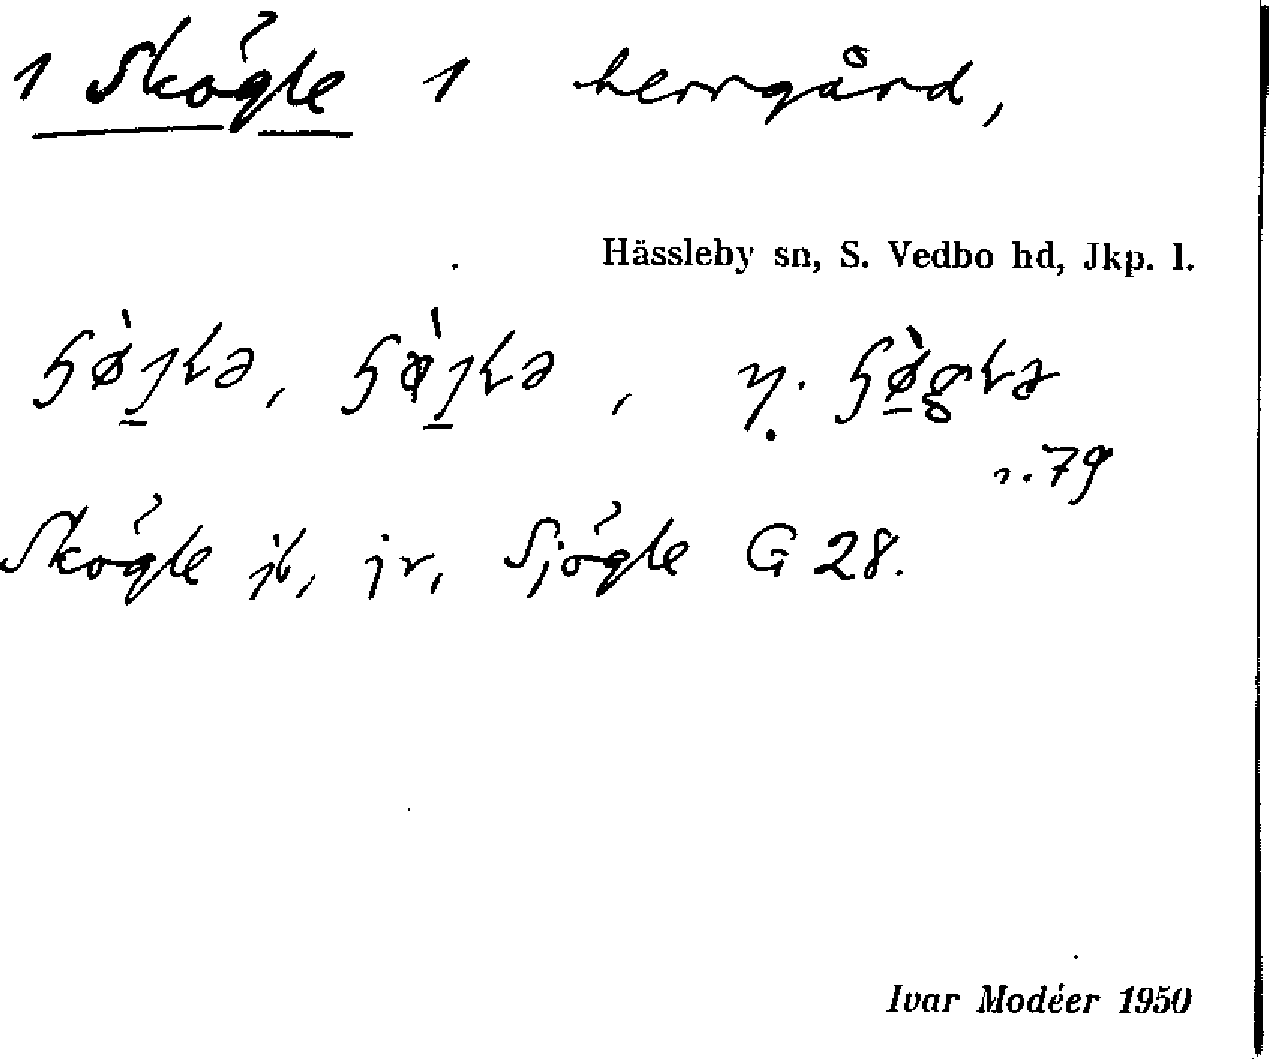 1 Skögle 1 herrgård,
Hässleby sn, S. Vedbo hd, Jkp. l.
n. 79
Skögle jb, jr, Sjögle G 28.
Ivar Modéer 1950